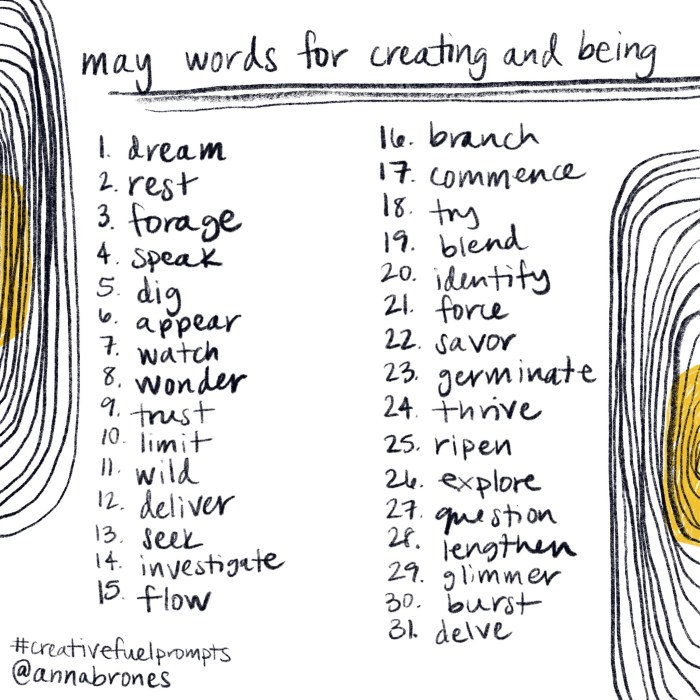 may words for creating and being
1. dream
2. rest
3. forage
4. speak
5. dig
6. appear
7. watch
8. wonder
9. trust
10. limit
11. wild
12. deliver
13. seek
14. investigate
15. flow
16. branch
17. commence
18. try
19. blend
20. identify
21. force
22. savor
23. germinate
24. thrive
25. ripen
26. explore
27. question
28. lengthen
29. glimmer
30. burst
31. delve
#creativefuelprompts
@annabrones